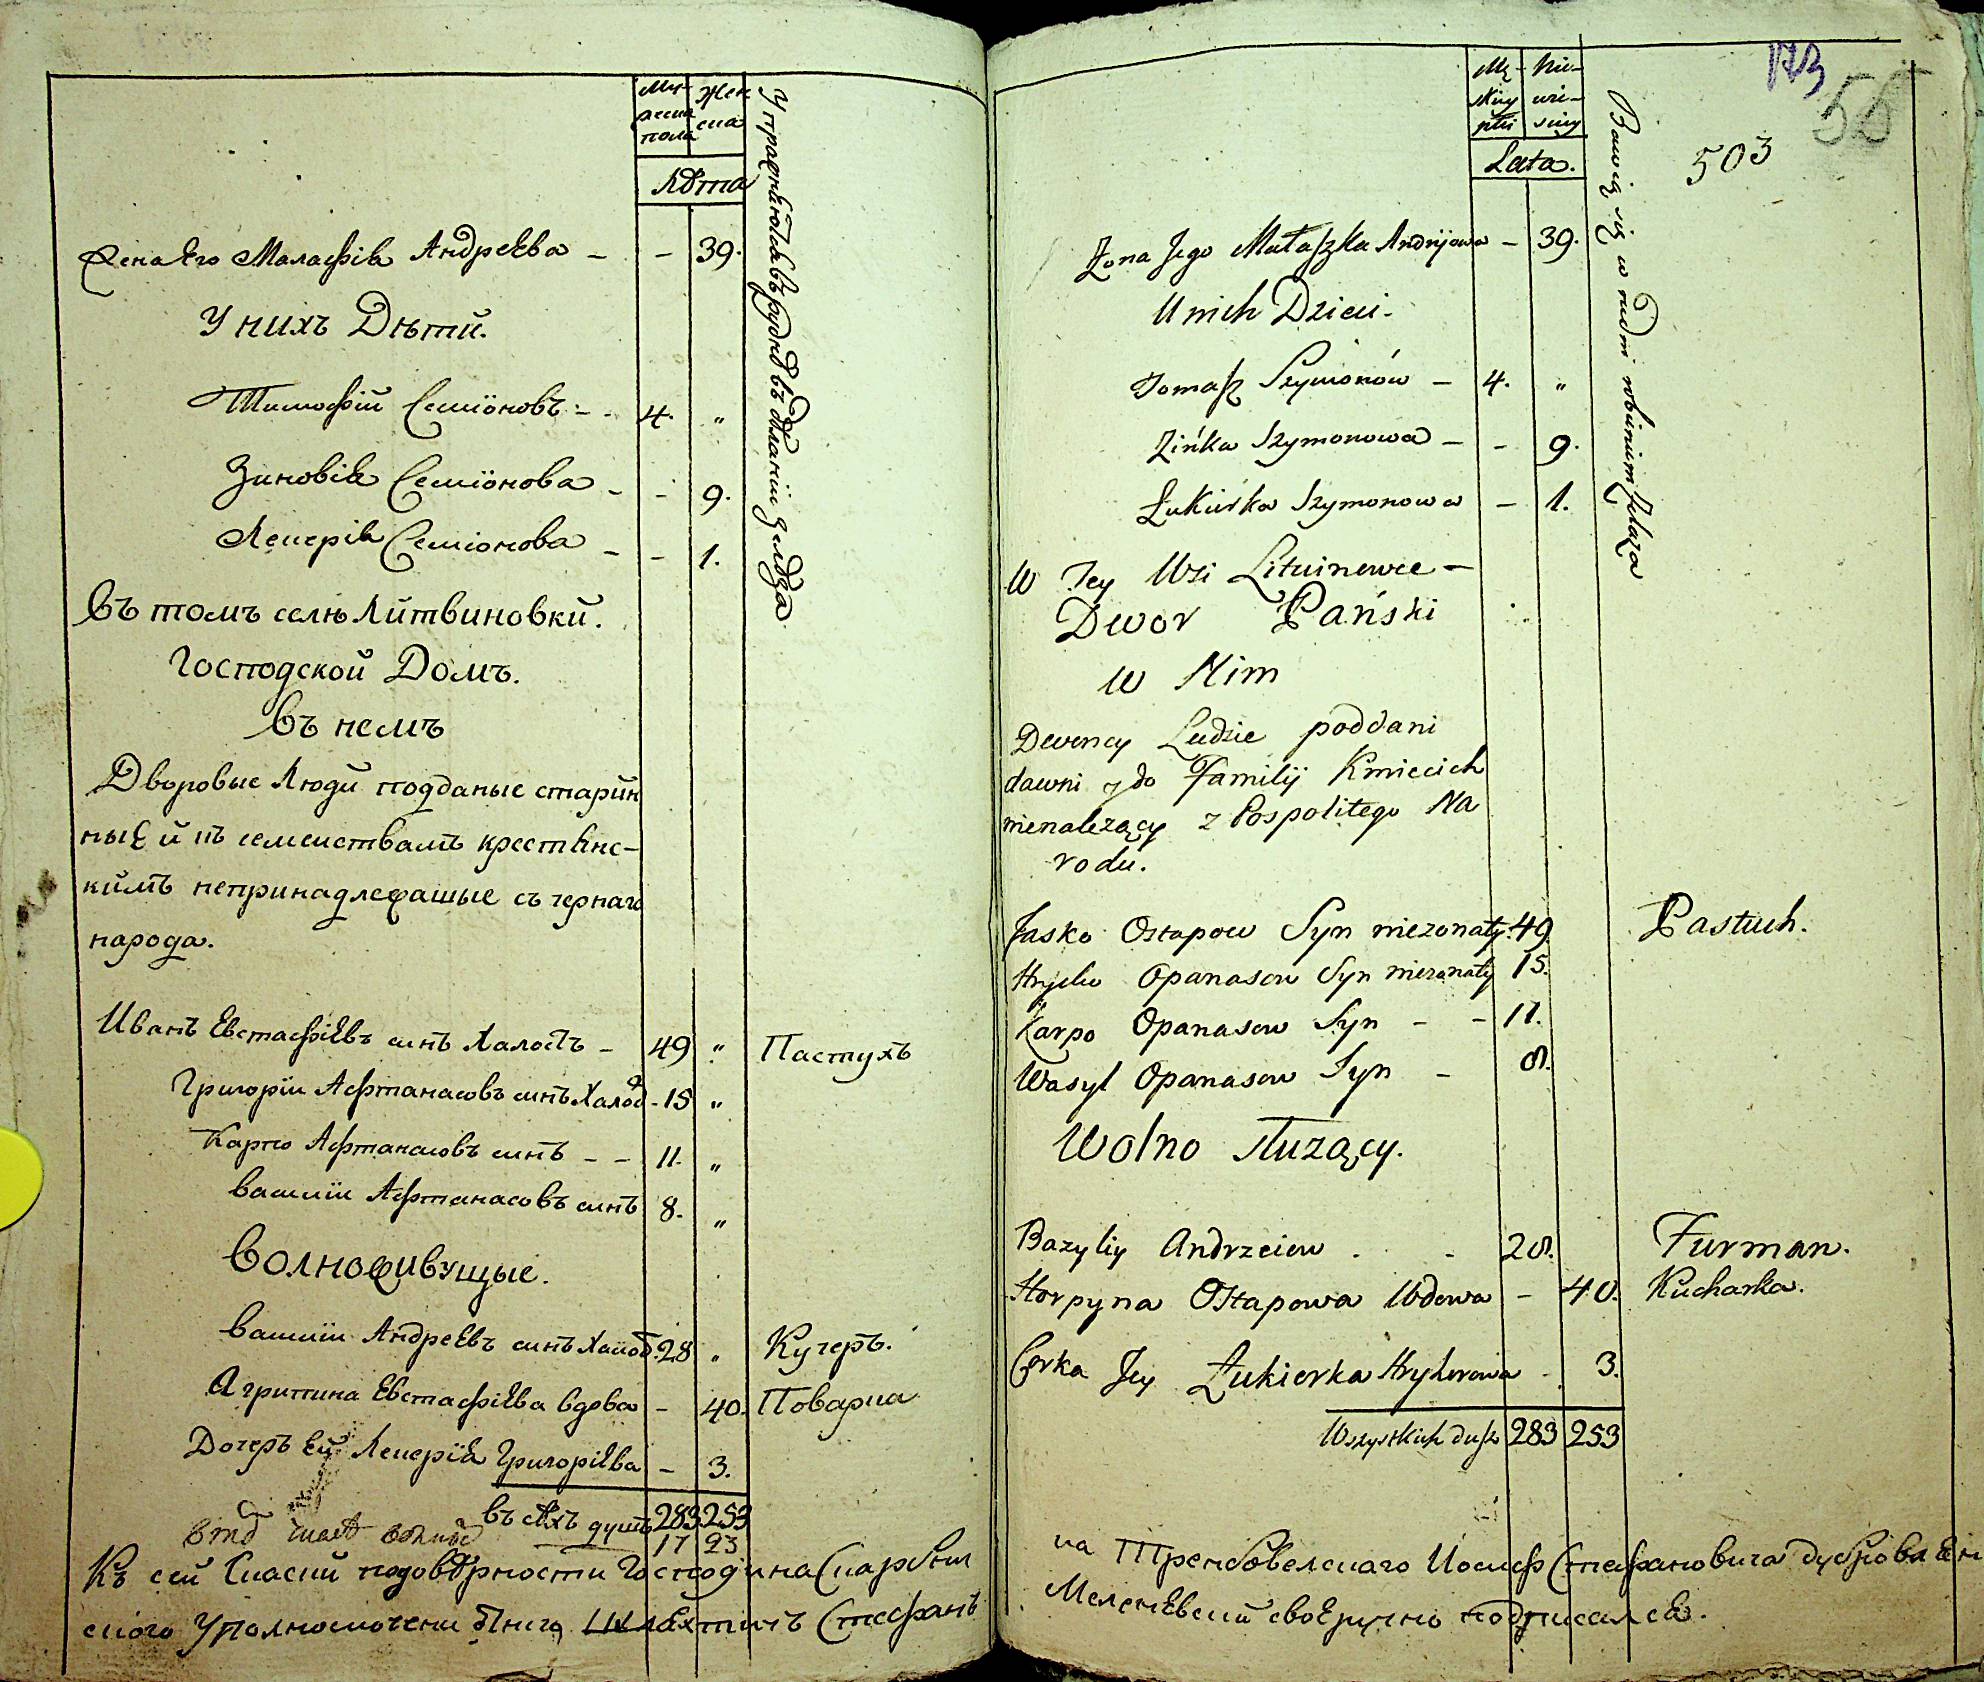 Му-
жеска
пола
Жен
ска
Лѣта
Упражняются въ рудни въ дѣланіи желѣза
Жена Его Маласкія Андреева - - 39.
У нихъ Дѣти.
Тимофій Семіоновъ - - 4. „
Зиновія Семіонова - - 9.
Лекерія Семіонова - - 1.
Въ томъ селѣ Литвиновки.
Господской Домъ.
въ немъ
Дворовые Люди подданые старин
ные и къ семействамъ крестянс-
кимъ непринадлежашые съ чернаго
народа.
Иванъ Евстафіевъ синъ Халостъ - 49 „ Пастухъ
Григоріи Афтанасовъ синъ Халос - 15 „
Карпо Афтанасовъ синъ - - 11. „
Василіи Афтанасовъ синъ 8. „
Волноживущые.
Василіи Андреевъ синъ Халос. 28 „ Кучеръ.
Агрипина Евстафіева вдова - 40. Поварка
Дочеръ Ей Лекерія Григоріева - 3.
въсѣхъ душъ 283 253
17 23
Къ сей Скаски подовѣрности Господина Скарбни
ского Уполномочени Шляхтичъ Стефанъ
173
55
503
Mę-
skiey
płci
Nie-
wie-
sciey
Lata.
Bawią się w rudni robieniem żelaza
Żona Jego Małaszka Andrijowa - 39.
U nich Dzieci.
Tomasz Szymonów - 4. „
Zińka Szymonowa - - 9.
Łukirka Szymonowa - 1.
W Tey Wsi Litwinowce -
Dwor Pański
w Nim
Dworscy Ludzie poddani
dawni y do Familij Kmiecich
nienalezący z Pospolitego Na
rodu.
Jasko Ostapow Syn niezonaty. 49. Pastuch.
Hryćko Opanasow Syn niezonaty 15.
Karpo Opanasow Syn - - 11.
Wasyl Opanasow Syn - 8.
Wolno służący.
Bazyliy Andrzeiew . . 28. Furman.
Horpyna Ostapowa Wdowa - 40. Kucharka.
Corka Jey Łukierka Hryhorowa - 3.
Wszystkich dusz 283 253
на Трембовелскаго Иосиф Стефановича
своеручно подписался.